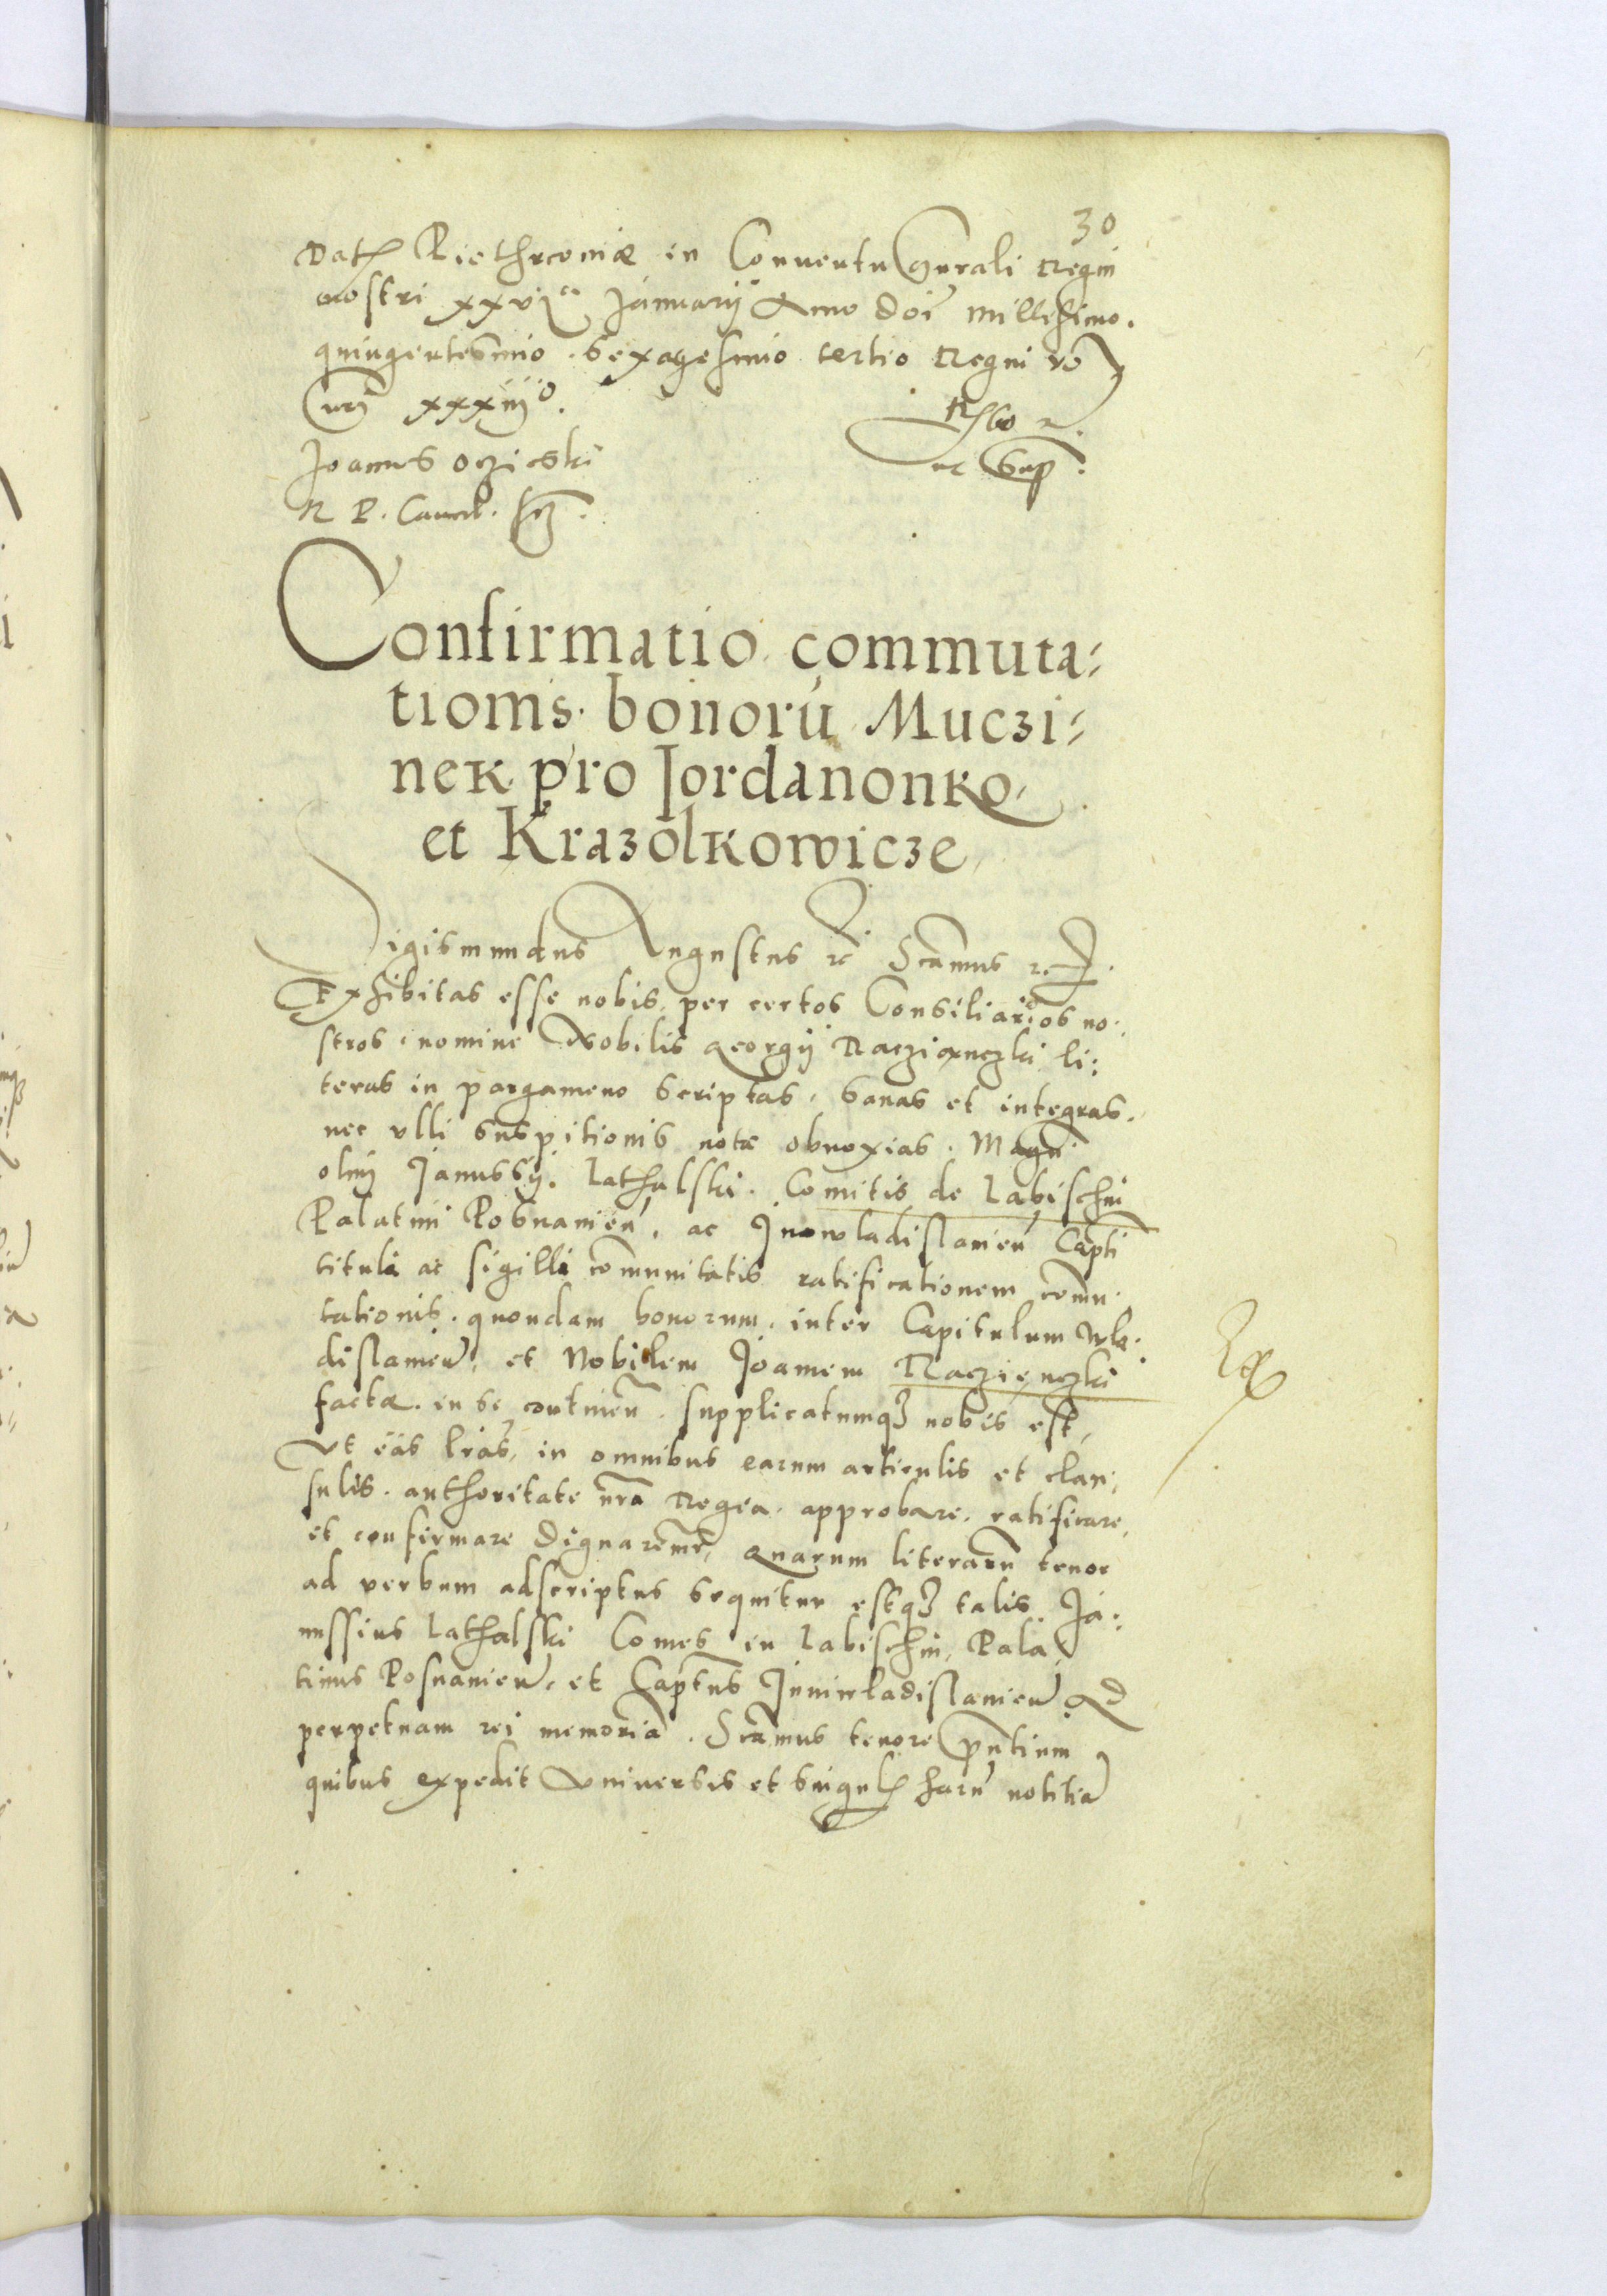 30
Dat Piethrconiæ in Conuentu Gnrali Regni
nostri xxvi Januarij Anno Doi millesimo.
quingentesimo. Sexagesimo tertio Regni vo
nri xxxiiij°.
Joannes oczieski
R. P. Cancel.
ut Sup.
Confirmatio commuta-
tionis bonorũ Muczi-
nek pro Jordanonko
et Krazolkowicze
Sigismundus Augustus rc̃ Scãmus
Exhibitas esse nobis per certos Consiliarios no:
stros nomine Nobilis Georgij Raczianczki li:
teras in pargameno scriptas, sanas et integras.
nec ulli suspitionis notæ obnoxias. Magci
olim Janussij. Lathalski. Comitis de Labischin
Palatini Posnanień, ac Jnowladislauień Capti
tituli ac sigilli cõmunitatis ratificationem cõmu-
tationis. quondam bonorum. inter Capitulum Wla-
dislauień, et Nobilem Joannem Raczięnczki
factæ. in se continen̄. supplicatumq3 nobis est,
Vt eas lr̃as, in omnibus earum articulis et clau:
sulis. authoritate nr̃a Regia. approbare. ratificare,
et confirmare dignaremr̃, Quarum literarũ tenor
ad verbum adscriptus sequitur estq3 talis. Ja:
nussius Lathalski Comes in Labischin, Pala
tinus Posnanień. et Captũs Juniwladislauień Ad
perpetuam rei memoriã. Scãmus tenore pñtium
quibus expedit Vniuersis et singul harũ notitiã